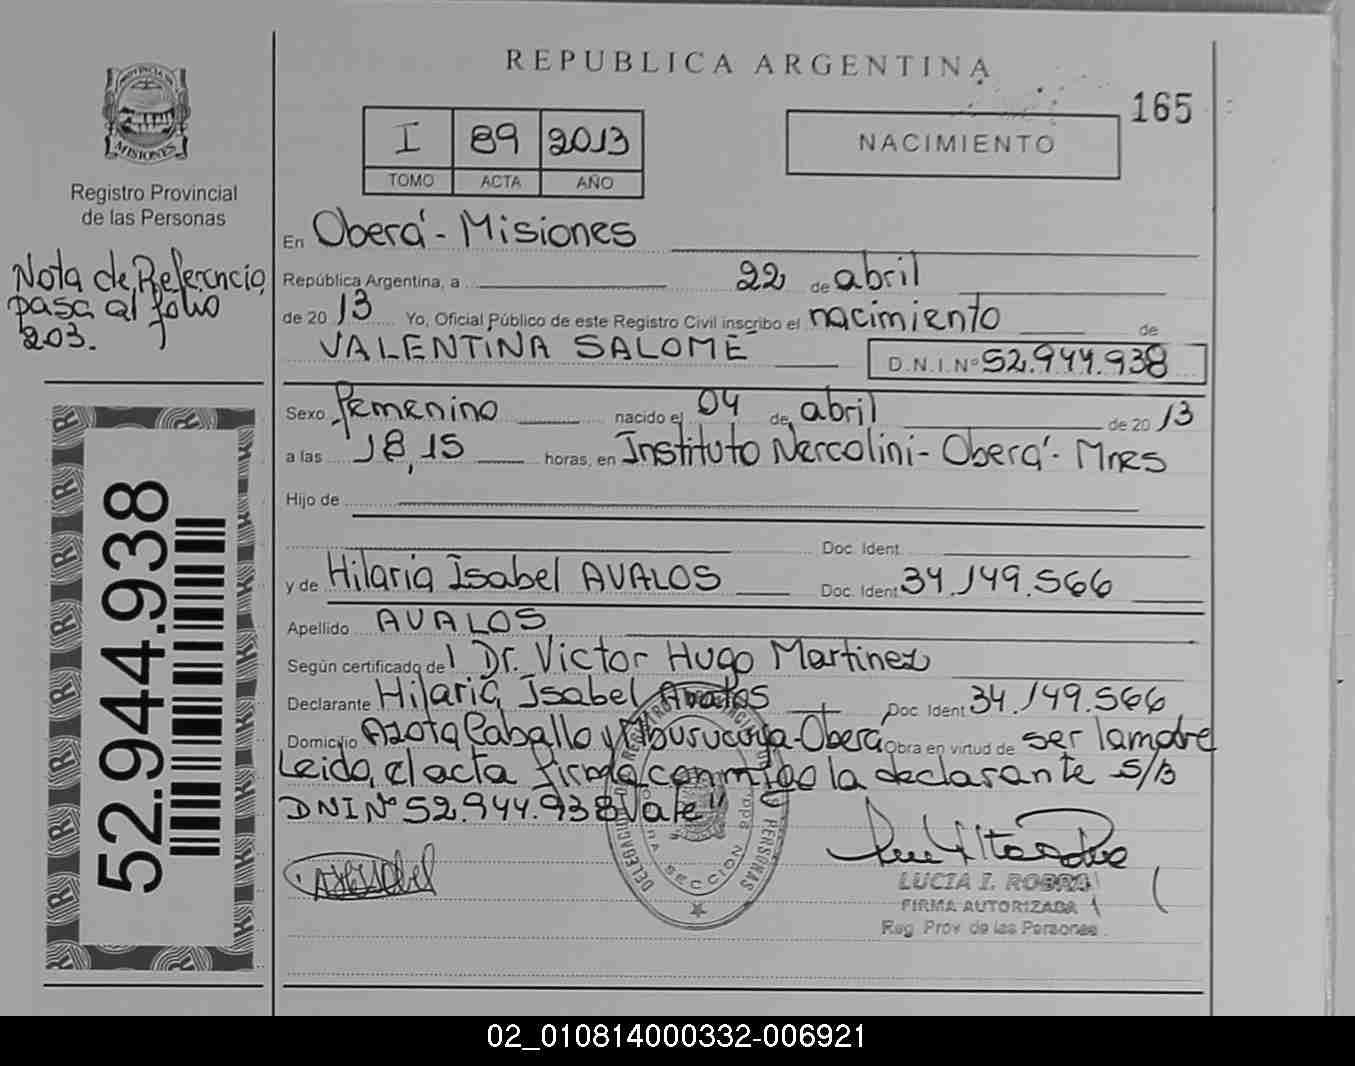 REPUBLICA ARGENTINA
165
PROVINCIA DE
MISIONES
I 89 2013
TOMO ACTA AÑO
NACIMIENTO
Registro Provincial
de las Personas
Nota de Referencia
pasa al folio
203.
En Oberá - Misiones
República Argentina, a 22 de abril
de 20 13 Yo, Oficial Público de este Registro Civil inscribo el nacimiento de
VALENTINA SALOMÉ D.N.I. Nº 52.944.938
Sexo femenino nacido el 04 de abril de 20 13
a las 18,15 horas, en Instituto Nercolini - Oberá - Mnes
Hijo de
Doc. Ident.
y de Hilaria Isabel AVALOS Doc. Ident. 34.149.566
Apellido AVALOS
Según certificado de Dr. Victor Hugo Martinez
Declarante Hilaria Isabel Avalos Doc. Ident. 34.149.566
Domicilio Azota Caballo y Mburucuya - Oberá Obra en virtud de ser la madre
Leida el acta firma conmigo la declarante S/B
DNI Nº 52.944.938 Vale"
52.944.938
LUCIA I. ROBRA
FIRMA AUTORIZADA
Reg. Prov. de las Personas
02_010814000332-006921